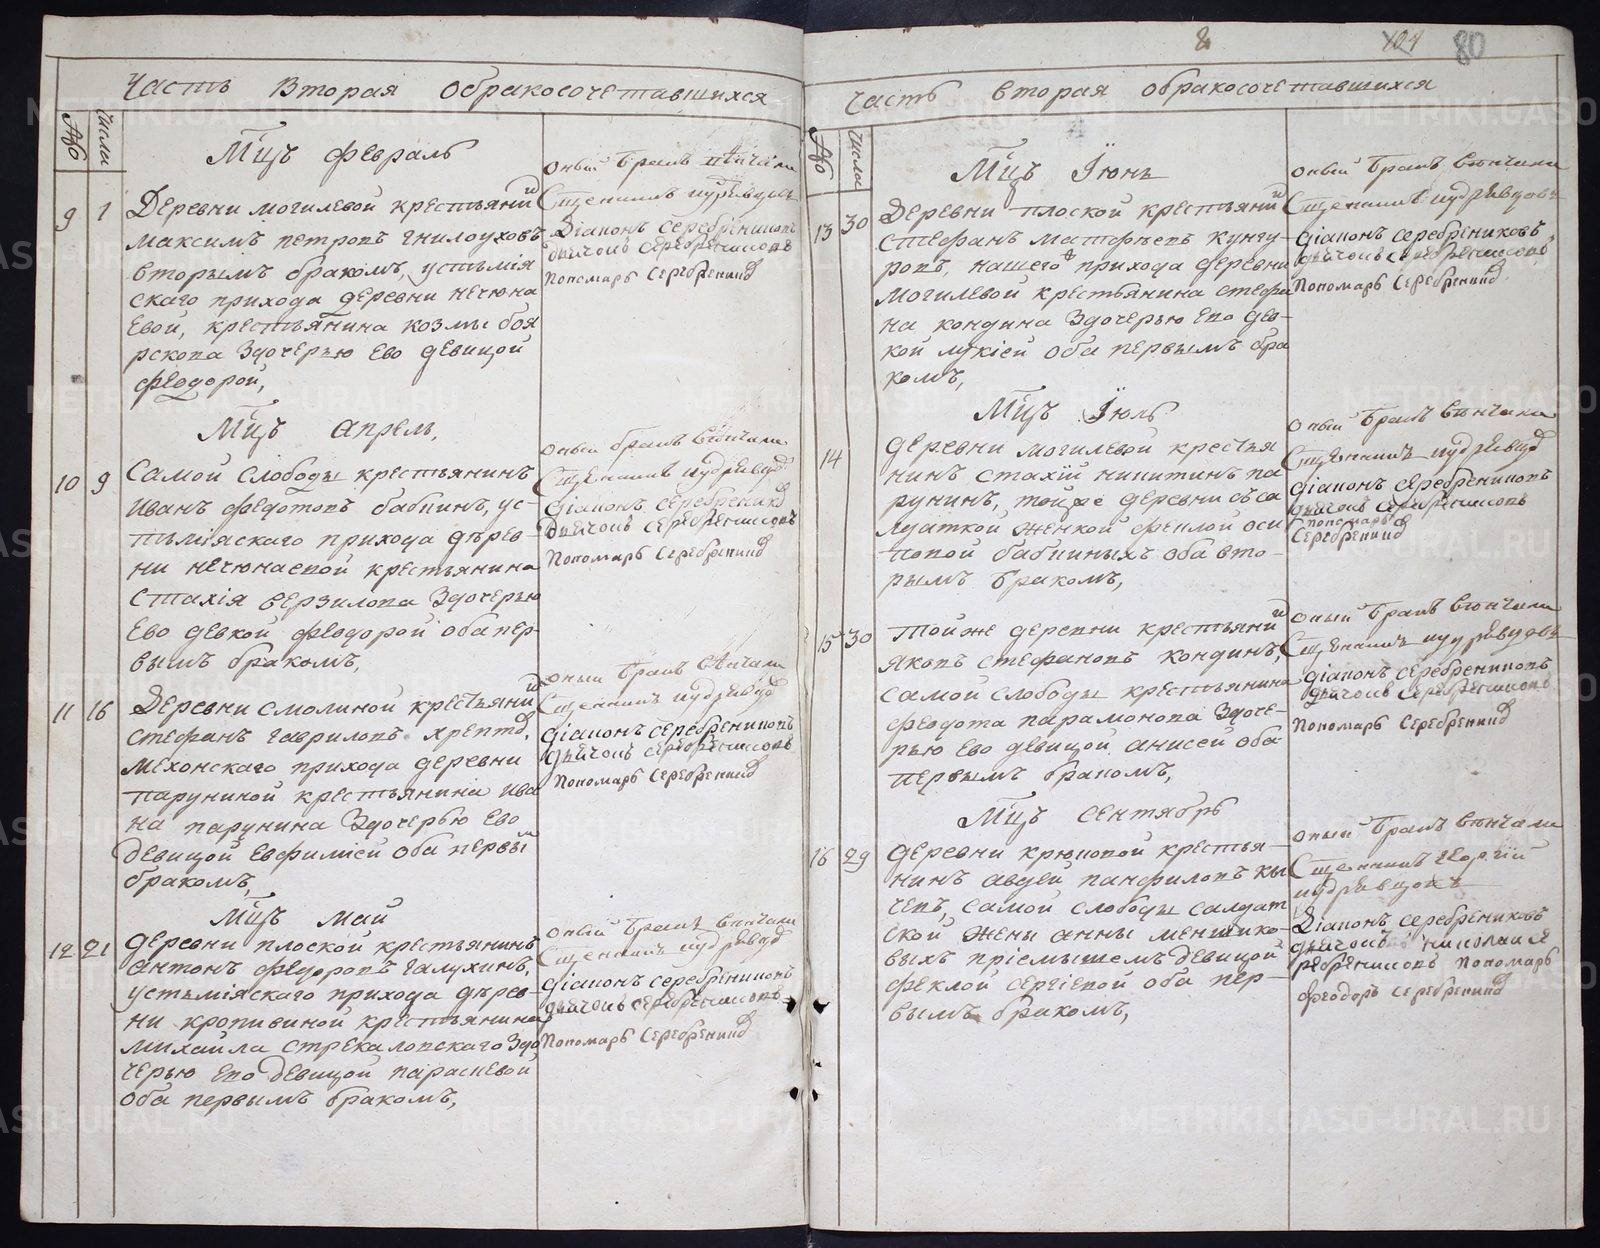 Часть Вторая обракосочетавшихся
№ Числа
Мцъ февраль
9 1 Деревни могилевой крестьянинъ
максимъ петровъ гнилоуховъ
вторымъ бракомъ, устьмія
скаго прихода деревни нечюна
евой, крестьянина козмы боя
рскова здочерью Ево девицой
феодорой,
оный бракъ венчали
Сщенникъ кудрявцовъ
Діаконъ серебрениковъ
дьячокъ серебрениковъ
Пономарь Серебрениковъ
Мцъ апрель,
10 9 Самой Слободы крестьянинъ
Иванъ федотовъ бабинъ, ус-
тьміяскаго прихода дерев-
ни нечюнаевой крестьянина
Стахія верзилова здочерью
Ево девкой феодорой оба пер-
вымъ бракомъ,
оный бракъ венчали
Сщенникъ кудрявцовъ
діаконъ серебрениковъ
дьячокъ серебрениковъ
Пономарь Серебрениковъ
11 16 Деревни смолиной крестьянинъ
стефанъ гавриловъ хрептовъ,
мехонскаго прихода деревни
паруниной крестьянина ива
на парунина здочерью Ево
девицой евфиміей оба первым
бракомъ,
оный бракъ венчали
Сщенникъ кудрявцовъ
діаконъ серебрениковъ
дьячокъ серебрениковъ
Пономарь Серебрениковъ
Мцъ май
12 21 деревни плоской крестьянинъ
антонъ федоровъ галухинъ,
устьміяскаго прихода дерев-
ни кропивиной крестьянина
михайла стрекаловскаго здо
черью Ево девицой парасковой
оба первымъ бракомъ,
оный бракъ венчали
Сщенникъ кудрявцовъ
діаконъ серебрениковъ
дьячокъ серебрениковъ
Пономарь Серебрениковъ
8 104 80
Часть вторая обракосочетавшихся
№ Числа
Мцъ Їюнь
13 30 Деревни плоской крестьянинъ
Стефанъ матфеевъ кунгу
ровъ, нашего прихода деревни
могилевой крестьянина стефа
на кондина здочерью Ево дев-
кой лукіей оба первымъ бра
комъ,
оный бракъ венчали
Сщенникъ кудрявцовъ
діаконъ серебрениковъ
дьячокъ серебрениковъ
Пономарь Серебрениковъ
Мцъ Їюль
14 деревни могилевой крестья
нинъ стахїй никитинъ па
рунинъ, той же деревни съ са
лдаткой женкой феклой оси
повой бабиныхъ оба вто-
рымъ бракомъ,
оный бракъ венчали
Сщенникъ кудрявцовъ
діаконъ серебрениковъ
дьячокъ серебрениковъ
пономарь
Серебрениковъ
15 30 той же деревни крестьянинъ
яковъ стефановъ кондинъ,
самой слободы крестьянина
феодота парамонова здоче-
рью Ево девицой анисей оба
первымъ бракомъ,
оный бракъ венчали
Сщенникъ кудрявцовъ
діаконъ серебрениковъ
дьячокъ серебрениковъ
Пономарь Серебрениковъ
Мцъ сентябрь
16 29 деревни крюковой крестья-
нинъ авдей панфиловъ кы
чевъ, самой слободы салдат
ской жены анны меншико-
выхъ пріемышемъ девицой
феклой сергіевой оба пер-
вымъ бракомъ,
оный бракъ венчали
Сщенникъ георгій
кудрявцовъ
Діаконъ серебрениковъ
дьячокъ николай се
ребрениковъ Пономарь
феодоръ серебрениковъ
METRIKI.GASO-URAL.RU